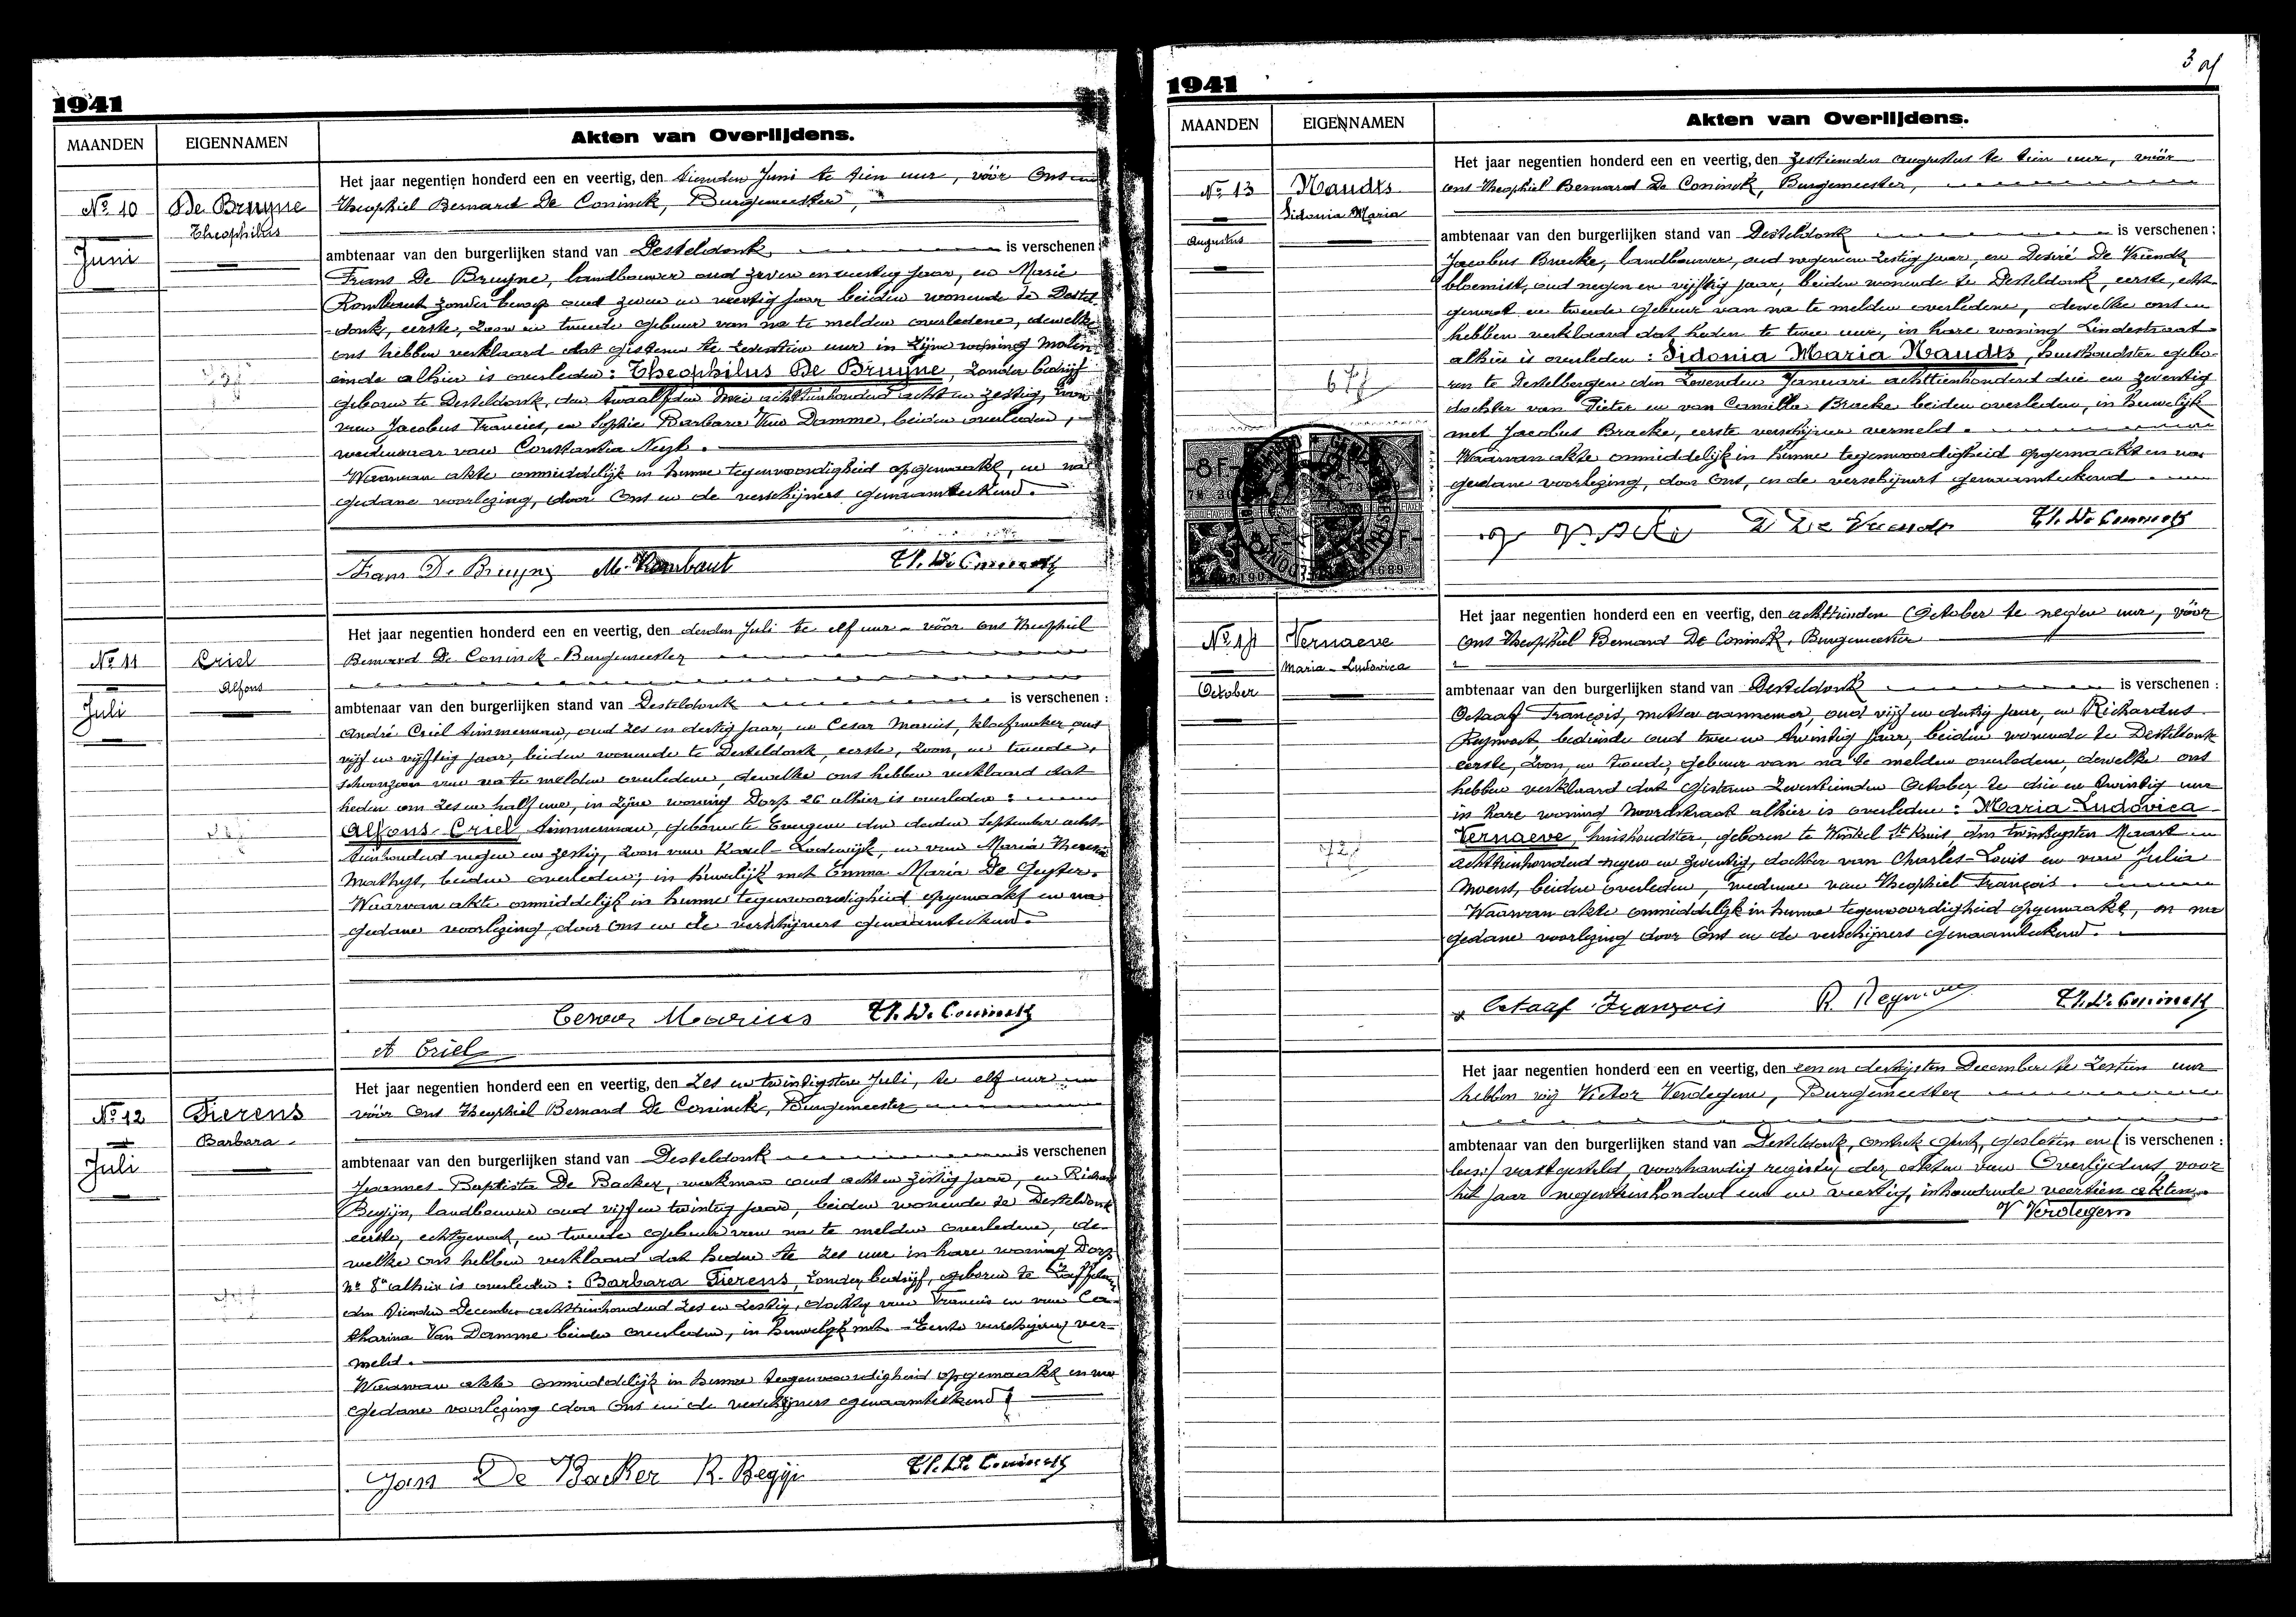 1941
MAANDEN
EIGENNAMEN
Akten van Overlijdens.
Nº 10
De Bruyne
Theophilus
Juni
Het jaar negentien honderd een en veertig, den tienden Juni te tien uur, vóór Ons
Theophiel Bernard De Coninck, Burgemeester,
ambtenaar van den burgerlijken stand van Desteldonk is verschenen :
Frans De Bruyne, landbouwer oud zeven en veertig jaar, en Marie
Rombaut zonder beroep oud zeven en veertig jaar beiden wonende te Destel-
donk, eerste, zoon en tweede gebuur van na te melden overledene, dewelke
ons hebben verklaard dat gisteren te zeventien uur in zijne woning Molen-
einde alhier is overleden : Theophilus De Bruyne, zonder bedrijf
geboren te Desteldonk, den twaalfden Mei achttienhonderd acht en zestig, zoon
van Jacobus Francies, en Sophie Barbara Van Damme, beiden overleden,
weduwnaar van Constantia Neyt.
Waarvan akte onmiddelijk in hunne tegenwoordigheid opgemaakt, en na
gedane voorlezing, door Ons en de verschijners genaamteekend.
Frans De Bruyne M. Rombaut Th. De Coninck
Nº 11
Criel
Alfons
Juli
Het jaar negentien honderd een en veertig, den derden Juli te elf uur vóór Ons Theophiel
Bernard De Coninck Burgemeester
ambtenaar van den burgerlijken stand van Desteldonk is verschenen :
André Criel timmerman, oud zes en dertig jaar, en Cesar Marius, kloefmaker oud
vijf en vijftig jaar, beiden wonende te Desteldonk, eerste, zoon, en tweede,
schoonzoon van na te melden overledene, dewelke ons hebben verklaard dat
heden om zes en half uur, in zijne woning Dorp 26 alhier is overleden :
Alfons Criel timmerman, geboren te Evergem den derden September acht-
tienhonderd negen en zestig, zoon van Karel-Lodewijk, en van Maria Theresia
Mathys, beiden overleden, in huwelijk met Emma Maria De Geyter.
Waarvan akte onmiddelijk in hunne tegenwoordigheid opgemaakt en na
gedane voorlezing, door Ons en de verschijners genaamteekend.
Cesar Marius Th. De Coninck
A Criel
Nº 12
Fierens
Barbara
Juli
Het jaar negentien honderd een en veertig, den zes en twintigsten Juli, te elf uur
vóór Ons Theophiel Bernard De Coninck, Burgemeester
ambtenaar van den burgerlijken stand van Desteldonk is verschenen
Joannes Baptista De Backer, werkman oud acht en zestig jaar, en Richard
Begijn, landbouwer oud vijf en twintig jaar, beiden wonende te Desteldonk
eerste, echtgenoot, en tweede gebuur van na te melden overledene, de-
welke ons hebben verklaard dat heden te zes uur in hare woning Dorp
nr 8 alhier is overleden : Barbara Fierens, zonder bedrijf, geboren te
den December achttienhonderd zes en zestig, dochter van Francies en van Ca-
tharina Van Damme beiden overleden, in huwelijk met Eerste verschijner ver-
meld.
Waarvan akte onmiddelijk in hunne tegenwoordigheid opgemaakt en na
gedane voorlezing door Ons en de verschijners genaamteekend
Jan De Backer R. Begijn Th. De Coninck
1941
MAANDEN
EIGENNAMEN
Akten van Overlijdens.
Nº 13
Naudts
Sidonia Maria
Augustus
Het jaar negentien honderd een en veertig, den zestienden augustus te tien uur, vóór
ons Theophiel Bernard De Coninck, Burgemeester,
ambtenaar van den burgerlijken stand van Desteldonk is verschenen :
Jacobus Bracke, landbouwer, oud negen en zestig jaar, en Desiré De Vriendt
bloemist, oud negen en vijftig jaar, beiden wonende te Desteldonk, eerste, echt-
genoot en tweede gebuur van na te melden overledene, dewelke ons
hebben verklaard dat heden te twee uur, in hare woning Lindestraat
alhier is overleden : Sidonia Maria Naudts, huishoudster gebo-
ren te Destelbergen den zevenden Januari achttienhonderd drie en zeventig
dochter van Pieter en van Camilla Bracke beiden overleden, in huwelijk
met Jacobus Bracke, eerste verschijner vermeld.
Waarvan akte onmiddelijk in hunne tegenwoordigheid opgemaakt en na
gedane voorlezing, door Ons, en de verschijners genaamteekend.
D De Vriendt Th. De Coninck
Nº 14
Vernaeve
Maria-Ludovica
October
Het jaar negentien honderd een en veertig, den achttienden October te negen uur, vóór
Ons Theophiel Bernard De Coninck, Burgemeester
ambtenaar van den burgerlijken stand van Desteldonk is verschenen :
Octaaf François, metser aannemer, oud vijf en dertig jaar, en Richardus
bediende oud twee en twintig jaar, beiden wonende te Desteldonk
eerste, zoon, en tweede, gebuur van na te melden overledene, dewelke ons
hebben verklaard dat Gisteren zeventienden October te drie en twintig uur
in hare woning Noordstraat alhier is overleden : Maria Ludovica
Vernaeve, huishoudster, geboren te Winkel St Kruis den twintigsten Maart
achttienhonderd negen en zeventig, dochter van Charles-Louis en van Julia
Moens, beiden overleden, weduwe van Theophiel François.
Waarvan akte onmiddelijk in hunne tegenwoordigheid opgemaakt, en na
gedane voorlezing door Ons en de verschijners genaamteekend.
Octaaf François Th. De Coninck
Het jaar negentien honderd een en veertig, den een en dertigsten December te zestien uur
hebben wij Victor Verdegem, Burgemeester
ambtenaar van den burgerlijken stand van Desteldonk, gesloten en ( is verschenen :
lees:) vastgesteld, voorhandig register der akten van Overlijdens voor
het jaar negentienhonderd een en veertig, inhoudende veertien akten.
V Verdegem